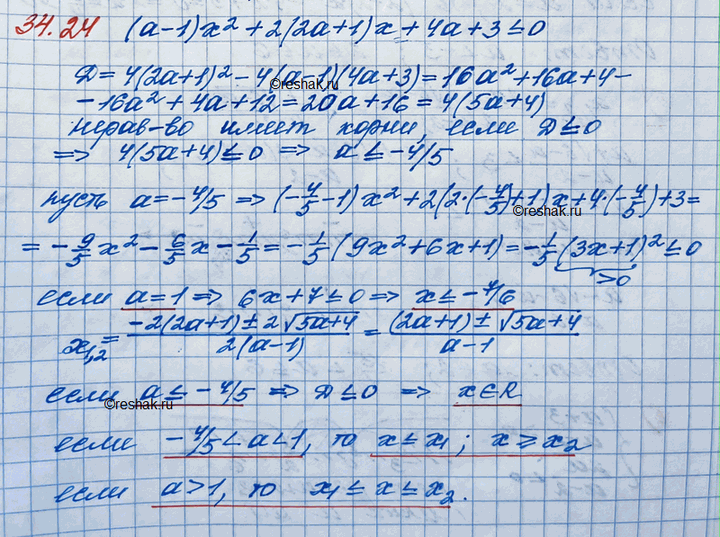 34.24 (a-1)x² + 2(2a+1)x + 4a+3 ≤ 0
Д = 4(2a+1)² - 4(a-1)(4a+3) = 16a² + 16a + 4 -
- 16a² + 4a + 12 = 20a + 16 = 4(5a+4)
нерав-во имеет корни, если Д ≤ 0
⇒ 4(5a+4) ≤ 0 ⇒ a ≤ -4/5
пусть a = -4/5 ⇒ (-4/5 - 1)x² + 2(2·(-4/5)+1)x + 4·(-4/5) + 3 =
= -9/5 x² - 6/5 x - 1/5 = -1/5 (9x² + 6x + 1) = -1/5 (3x+1)² ≤ 0
>0
если a = 1 ⇒ 6x + 7 ≤ 0 ⇒ x ≤ -7/6
x1,2 = -2(2a+1) ± 2√5a+4 / 2(a-1) = (2a+1) ± √5a+4 / a-1
если a ≤ -4/5 ⇒ Д ≤ 0 ⇒ x ∈ R
если -4/5 < a < 1, то x ≤ x1; x ≥ x2
если a > 1, то x1 ≤ x ≤ x2.
©reshak.ru
©reshak.ru
©reshak.ru